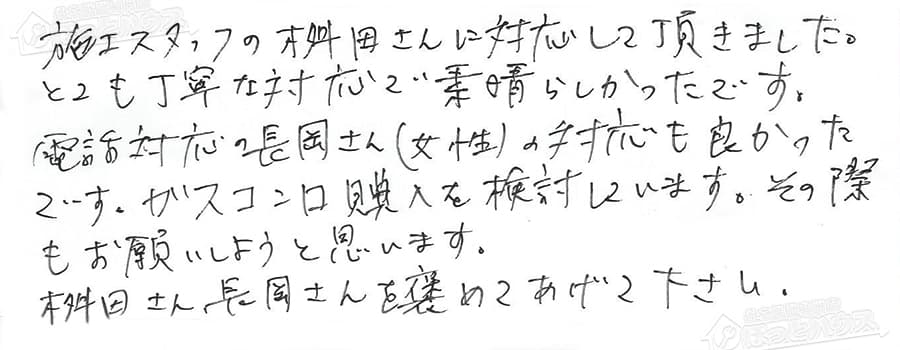 施工スタッフの桝田さんに対応して頂きました。
とても丁寧な対応で素晴らしかったです。
電話対応の長岡さん(女性)の対応も良かった
です。ガスコンロ購入を検討しています。その際
もお願いしようと思います。
桝田さん、長岡さんを褒めてあげて下さい。